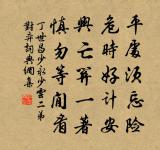 平處須忘險
危時好計安
興亡一著
慎勿等閒看
丁世昌少永少雲二弟
對弈詞典網集